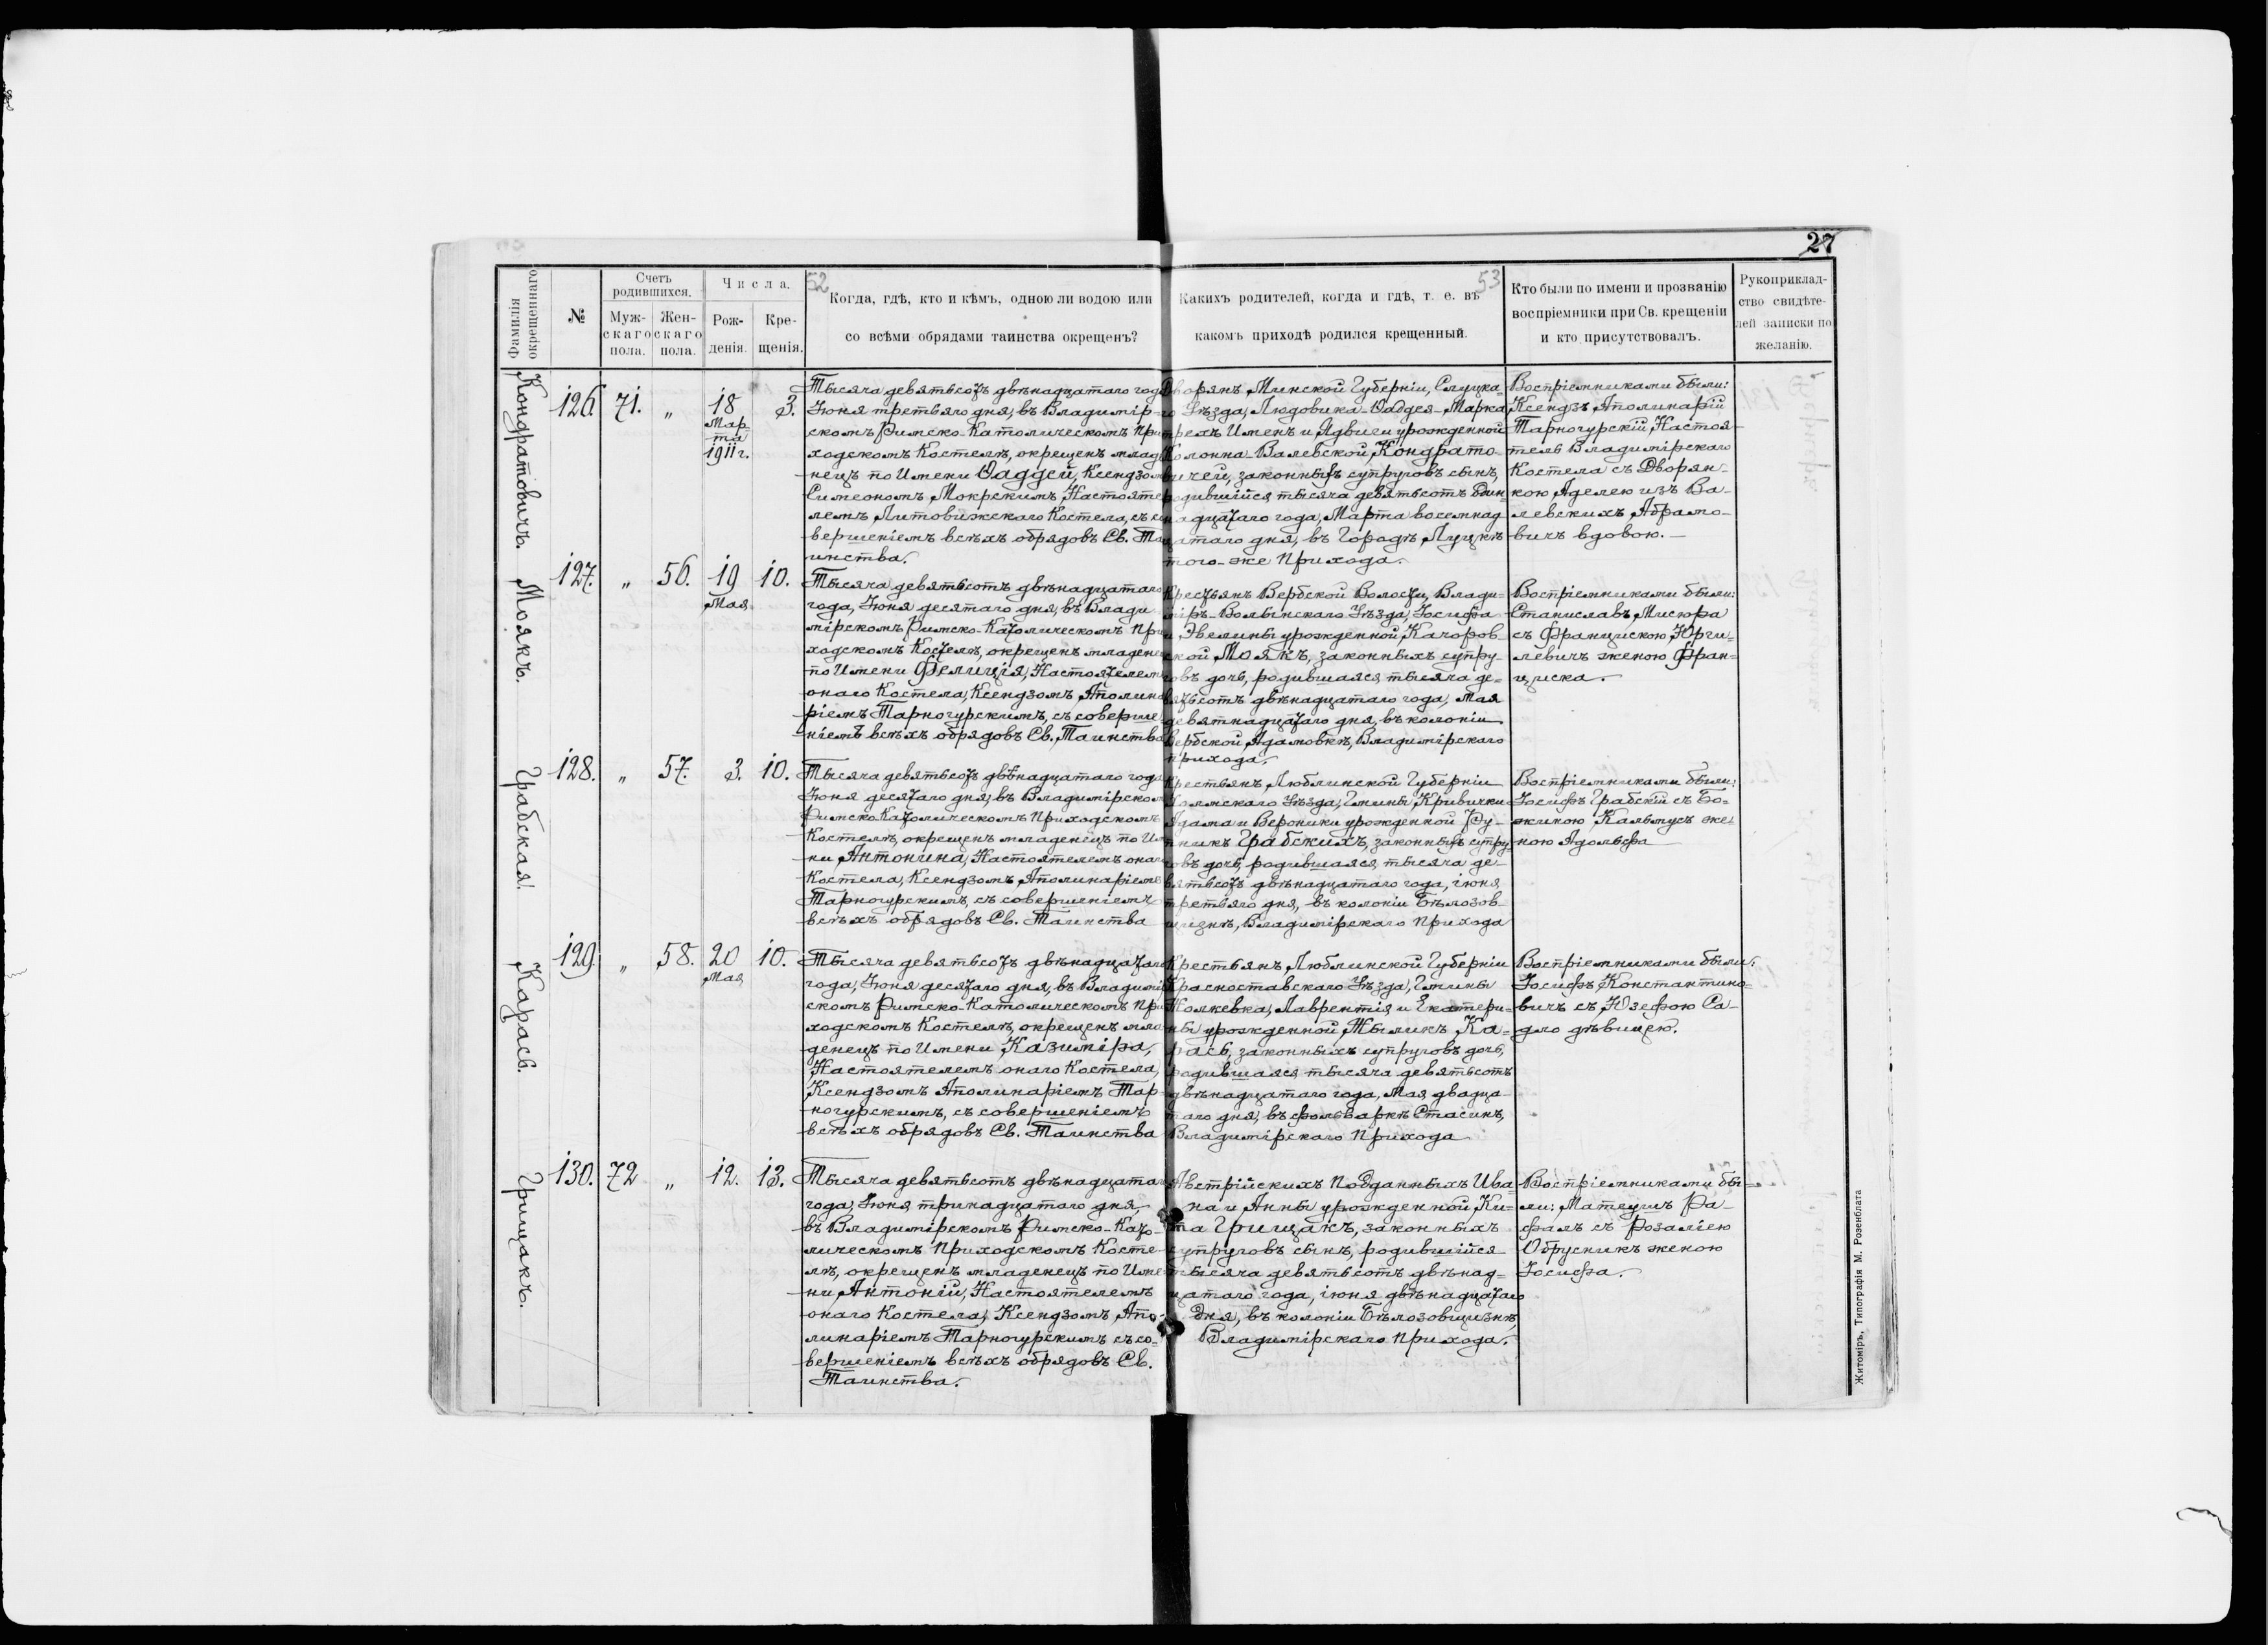 27
52
53
Фамилія
окрещеннаго
№
Счетъ
родившихся.
Муж-
скаго
пола.
Жен-
скаго
пола.
Числа.
Рож-
денія.
Кре-
щенія.
Когда, гдѣ, кто и кѣмъ, одною ли водою или
со всѣми обрядами таинства окрещенъ?
Какихъ родителей, когда и гдѣ, т. е. въ
какомъ приходѣ родился крещенный.
Кто были по имени и прозванію
воспріемники при Св. крещеніи
и кто присутствовалъ.
Рукоприклад-
ство свидѣте-
лей записки по
желанію.
Кондратовичъ.
126.
71.
„
18
Мар-
та
1911 г.
3.
Тысяча девятьсотъ двѣнадцатаго года
Іюня третьяго дня, въ Владимір-
скомъ Римско-Католическомъ При
ходскомъ Костелѣ, окрещенъ млад
нецъ по Имени Ѳаддей, Ксендзом
Симеономъ Мокрскимъ, Настояте
лемъ Литовижскаго Костела, съ со
вершеніемъ всѣхъ обрядовъ Св. Та
инства.
Дворянъ Минской Губерніи, Слуцка-
го Уѣзда, Людовика-Ѳаддея-Марка
трехъ Именъ и Ядвиги урожденной
Колонна-Валевской, Кондрато-
вичей, законныхъ супруговъ сынъ,
родившійся тысяча девятьсотъ один-
надцатаго года, Марта восемнад
цатаго дня, въ Городѣ Луцкѣ
того-же Прихода.
Воспріемниками были:
Ксендзъ Аполинарій
Тарногурскій, Настоя-
тель Владимірскаго
Костела съ Дворян-
кою Аделею изъ Ва-
левскихъ Абрамо-
вичъ вдовою.
Моякъ.
127.
„
56.
19
Мая
10.
Тысяча девятьсотъ двѣнадцатаго
года, Іюня десятаго дня, въ Влади
мірскомъ Римско-Католическомъ При
ходскомъ Костелѣ, окрещенъ младене
по Имени Фелиція, Настоятелем
онаго Костела, Ксендзомъ Аполина
ріемъ Тарногурскимъ, съ соверше
ніемъ всѣхъ обрядовъ Св. Таинства
Крестьянъ Вербской Волости, Влади-
міръ-Волынскаго Уѣзда, Іосифа
и Эвелины урожденной Качоров-
ской Моякъ, законныхъ супру-
говъ дочь, родившаяся тысяча де-
вятьсотъ двѣнадцатаго года, Мая
девятнадцатаго дня, въ колоніи
Вербской Адамовкѣ, Владимірскаго
прихода.
Воспріемниками были:
Станиславъ Мисюра
съ Францискою Юрги-
левичъ женою Фран-
циска.
Грабская.
128.
„
57.
3.
10.
Тысяча девятьсотъ двѣнадцатаго года
Іюня десятаго дня, въ Владимірском
Римско Католическомъ Приходскомъ
Костелѣ, окрещенъ младенецъ по Им
ни Антонина, Настоятелемъ онаго
Костела, Ксендзомъ Аполинаріемъ
Тарногурскимъ, съ совершеніемъ
всѣхъ обрядовъ Св. Таинства
Крестьянъ Люблинской Губерніи
Холмскаго Уѣзда, Гмины Кривички
Адама и Вероники урожденной
Грабскихъ, законныхъ супру-
говъ дочь, родившаяся, тысяча де-
вятьсотъ двѣнадцатаго года, іюня
третьяго дня, въ колоніи Бѣлозов-
щизнѣ, Владимірскаго Прихода
Воспріемниками были:
Іосифъ Грабскій съ Бо-
жиною Кальмусъ же-
ною Адольфа
Карась.
129.
„
58.
20
Мая
10.
Тысяча девятьсотъ двѣнадцатаго
года, Іюня десятаго дня, въ Владимір
скомъ Римско-Католическомъ При
ходскомъ Костелѣ, окрещенъ мла
денецъ по Имени Казиміра,
Настоятелемъ онаго Костела,
Ксендзомъ Аполинаріемъ Тар-
ногурскимъ, съ совершеніемъ
всѣхъ обрядовъ Св. Таинства
Крестьянъ Люблинской Губерніи
Красноставскаго Уѣзда, Гмины
Жолкевка, Лаврентія и Екатери-
ны урожденной Жыликъ Ка-
рась, законныхъ супруговъ дочь,
родившаяся тысяча девятьсотъ
двѣнадцатаго года, Мая двадца-
таго дня, въ фольваркѣ Стасинъ,
Владимірскаго Прихода
Воспріемниками были:
Іосифъ Константино-
вичъ съ Юзефою Са-
дло дѣвицею.
Грищакъ.
130.
72
„
12.
13.
Тысяча девятьсотъ двѣнадцатаго
года, Іюня тринадцатаго дня,
въ Владимірскомъ Римско-Като-
лическомъ Приходскомъ Косте-
лѣ, окрещенъ младенецъ по Име-
ни Антоній, Настоятелемъ
онаго Костела, Ксендзомъ Апо-
линаріемъ Тарногурскимъ съ со-
вершеніемъ всѣхъ обрядовъ Св.
Таинства.
Австрійскихъ Подданныхъ Ива-
на и Анны урожденной Ки-
та Грищакъ, законныхъ
супруговъ сынъ, родившійся
тысяча девятьсотъ двѣнад-
цатаго года, іюня двѣнадцатаго
дня, въ колоніи Бѣлозовщизнѣ,
Владимірскаго Прихода.
Воспріемниками бы-
ли: Матеушъ Ра-
фалъ съ Розаліею
Обрусникъ женою
Іосифа.
Житоміръ, Типографія М. Розенблата